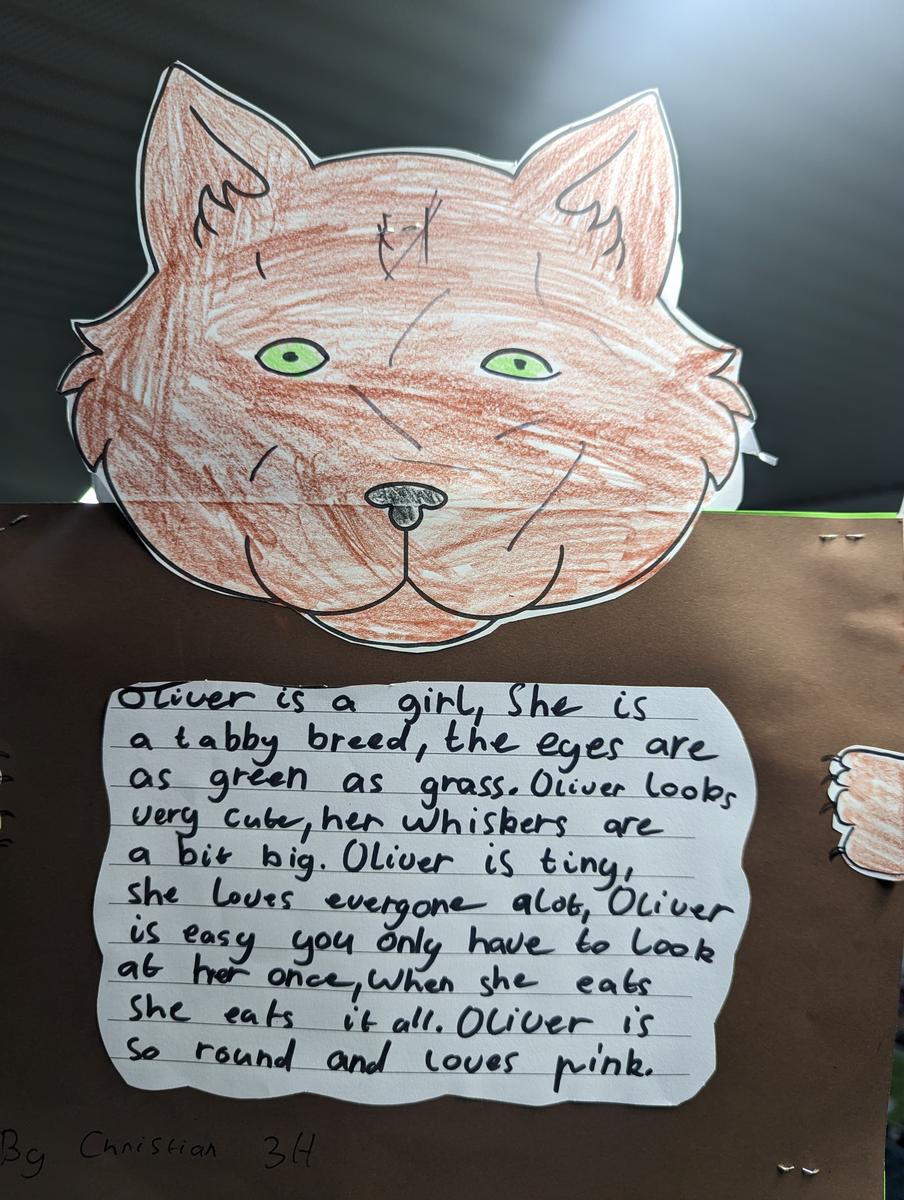 Oliver is a girl, She is
a tabby breed, the eyes are
as green as grass. Oliver looks
very cute, her whiskers are
a bit big. Oliver is tiny,
she loves everyone alot, Oliver
is easy you only have to look
at her once, When she eats
She eats it all. Oliver is
so round and loves pink.
By Christian 3H